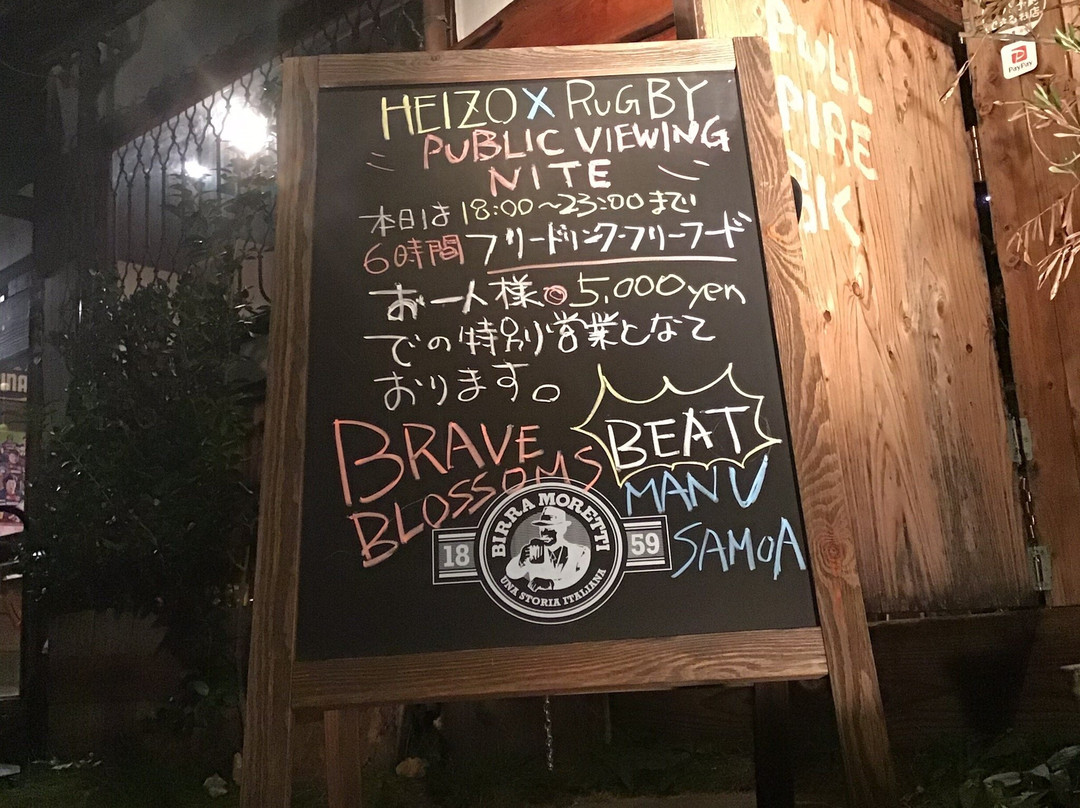 HEIZO X RUGBY
PUBLIC VIEWING
NITE
本日は18:00~23:00まで
6時間フリードリンク・フリーフード
お一人様 5,000yen
での特別営業となて
おります。
BRAVE
BLOSSOMS
BEAT
MANU
SAMOA
BIRRA MORETTI
18 59
UNA STORIA ITALIANA
PayPay
INA